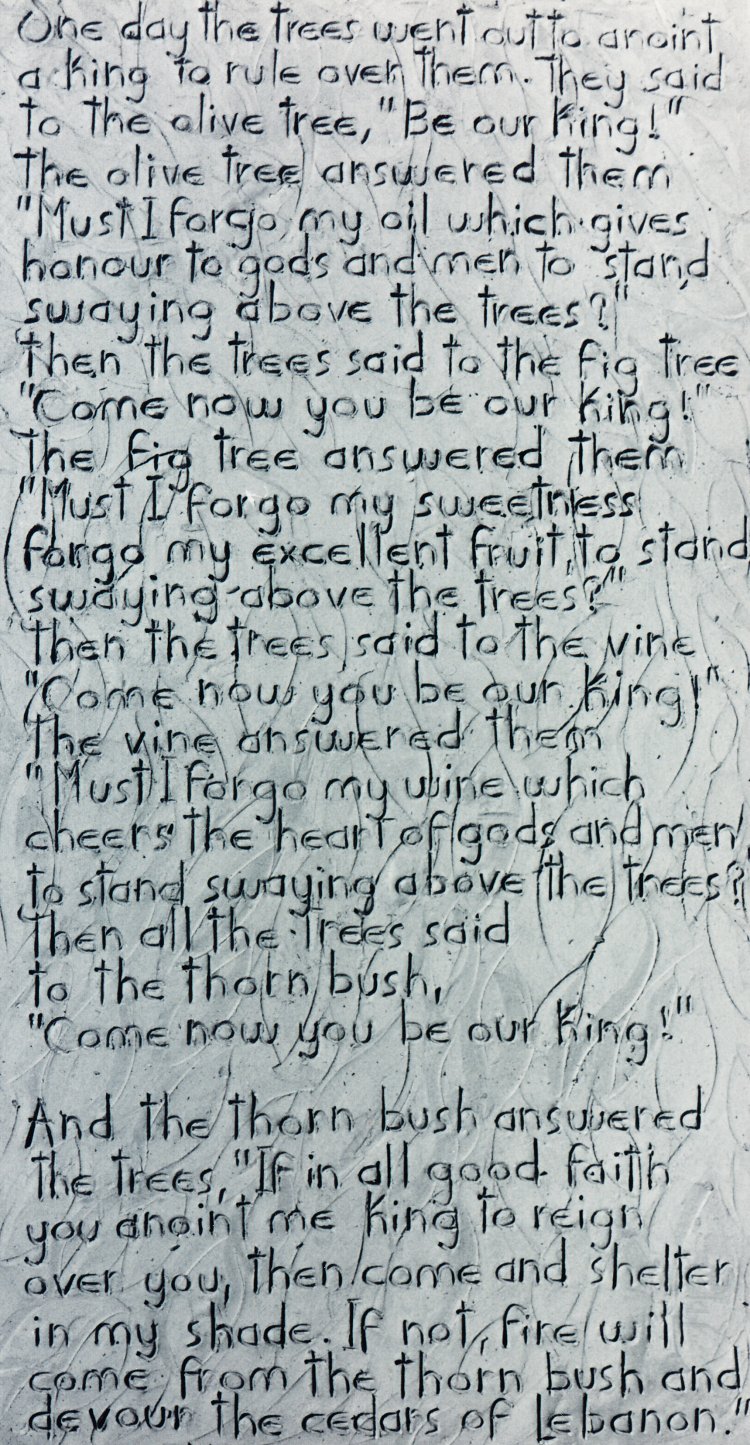 One day the trees went out to anoint
a king to rule over them. They said
to the olive tree, "Be our king!"
The olive tree answered them
"Must I forgo my oil which gives
honour to gods and men to stand
swaying above the trees?"
Then the trees said to the fig tree
"Come now you be our king!"
The fig tree answered them
"Must I forgo my sweetness
forgo my excellent fruit, to stand
swaying above the trees?"
Then the trees said to the vine
"Come now you be our king!"
The vine answered them
"Must I forgo my wine which
cheers the heart of gods and men,
to stand swaying above the trees?
Then all the trees said
to the thorn bush,
"Come now you be our king!"
And the thorn bush answered
the trees, "If in all good faith
you anoint me king to reign
over you, then come and shelter
in my shade. If not, fire will
come from the thorn bush and
devour the cedars of Lebanon."